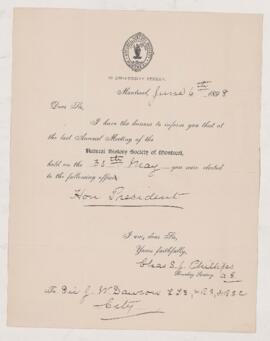 32 UNIVERSITY STREET,
Montreal, June 6th 1898
Dear Sir,
I have the honour to inform you that at
the last Annual Meeting of the
Natural History Society of Montreal,
held on the 30th May you were elected
to the following office
Hon President
I am, dear Sir,
Yours faithfully,
Chas S. J. Phillips
Secretary
To Sir J. W Dawson LLD, FRS,
City